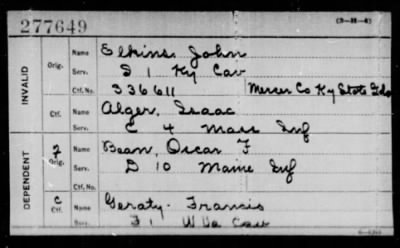 277649
(3-H-4)
INVALID
Orig.
Name Elkins, John
Serv. D 1 Ky Cav
Ctf. No. 336611 Mercer Co Ky State
Ctf.
Name Alger, Isaac
Serv. C 4 Mass Inf
DEPENDENT
Orig.
Name Bean, Oscar F
Serv. D 10 Maine Inf
Ctf. No.
C
Ctf.
Name Geraty Francis
Serv. F 1 W Va Cav